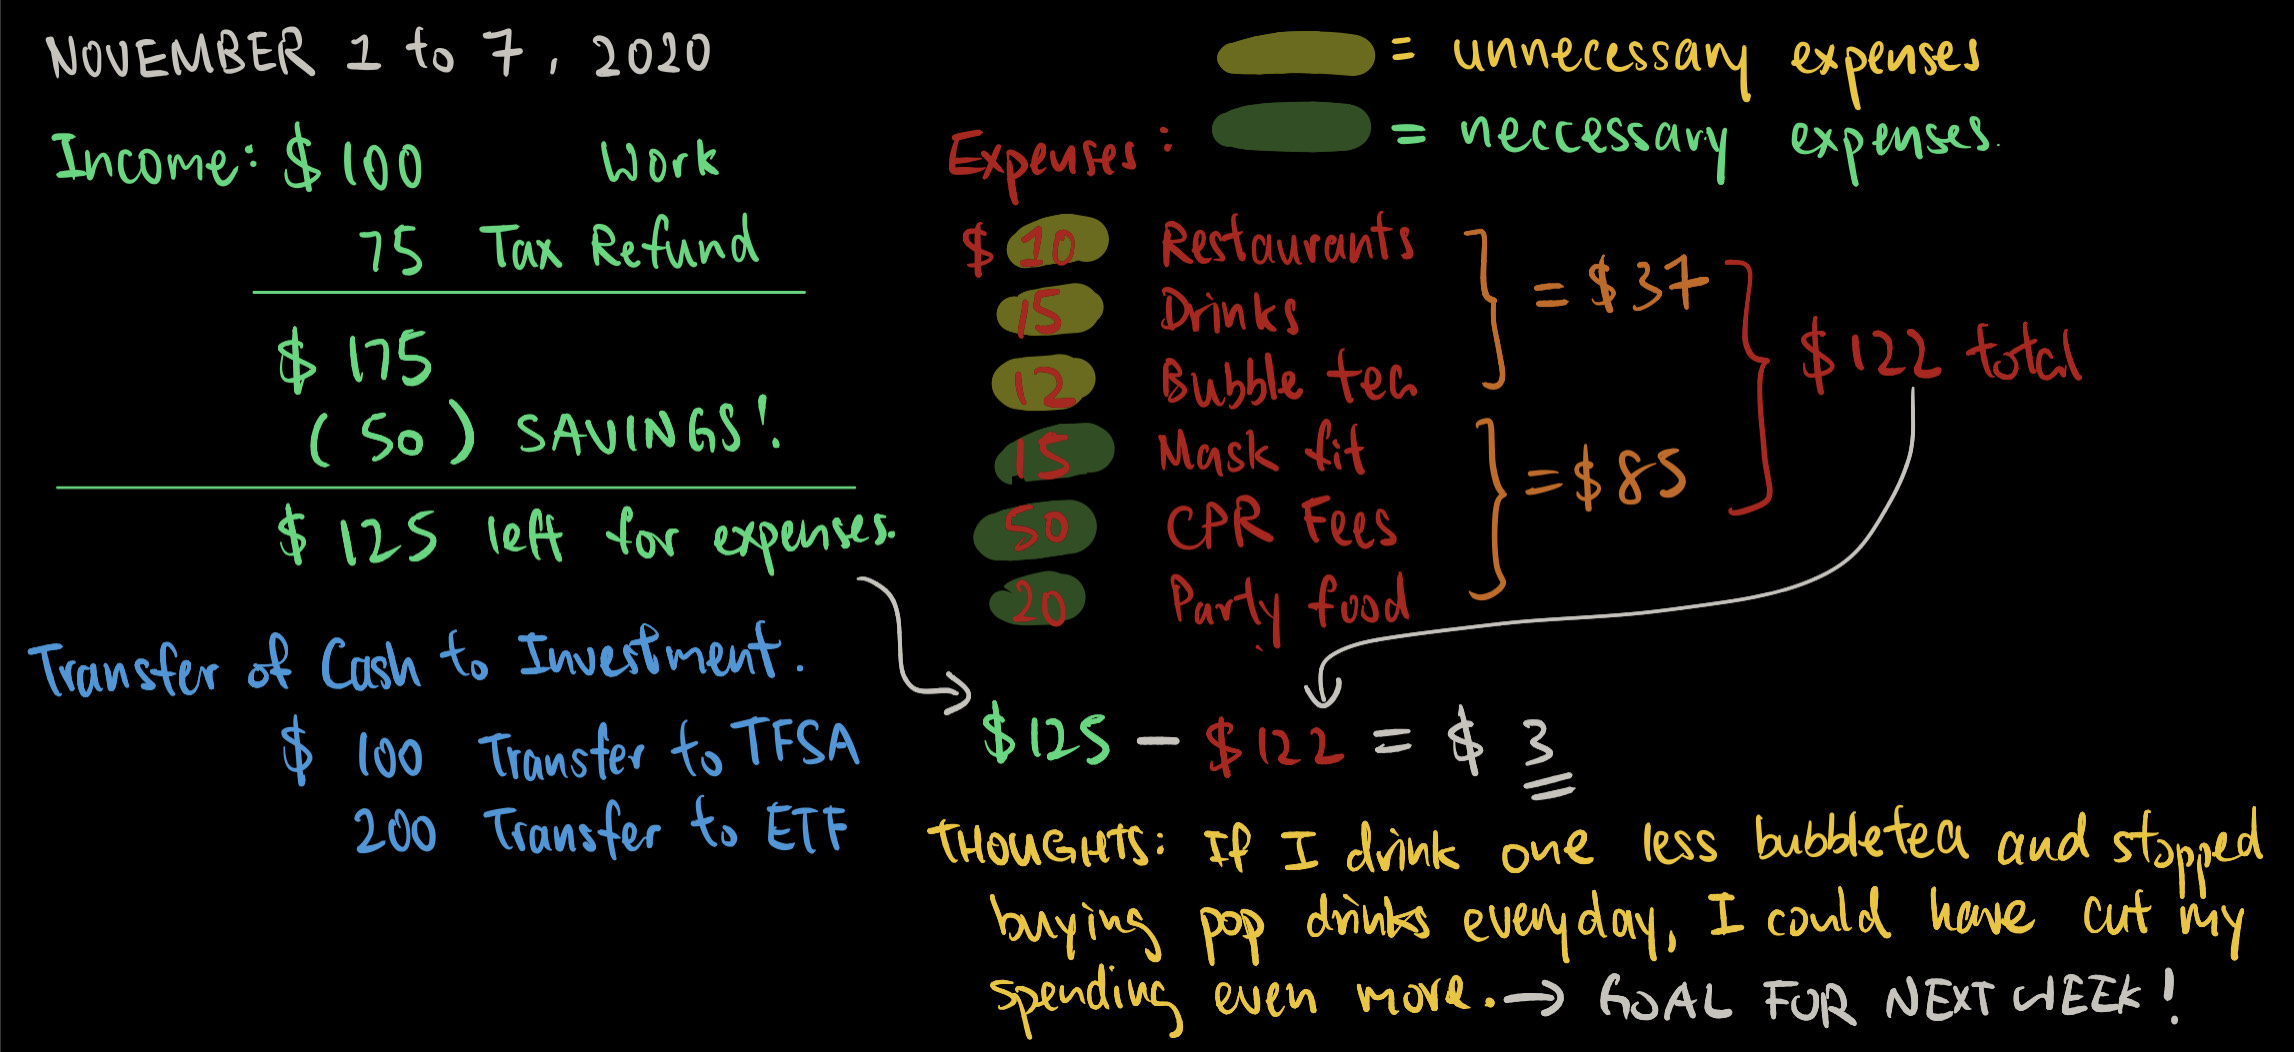 NOVEMBER 1 to 7, 2020
Income: $ 100 Work
75 Tax Refund
$ 175
(50) SAVINGS!
$ 125 left for expenses.
Transfer of Cash to Investment.
$ 100 Transfer to TFSA
200 Transfer to ETF
= unnecessary expenses
= neccessary expenses.
Expenses:
$ 10 Restaurants
15 Drinks
12 Bubble tea
= $37
15 Mask fit
50 CPR Fees
20 Party food
= $85
$122 total
$125 - $122 = $ 3
THOUGHTS: If I drink one less bubbletea and stopped
buying pop drinks everyday, I could have cut my
spending even more. → GOAL FOR NEXT WEEK!